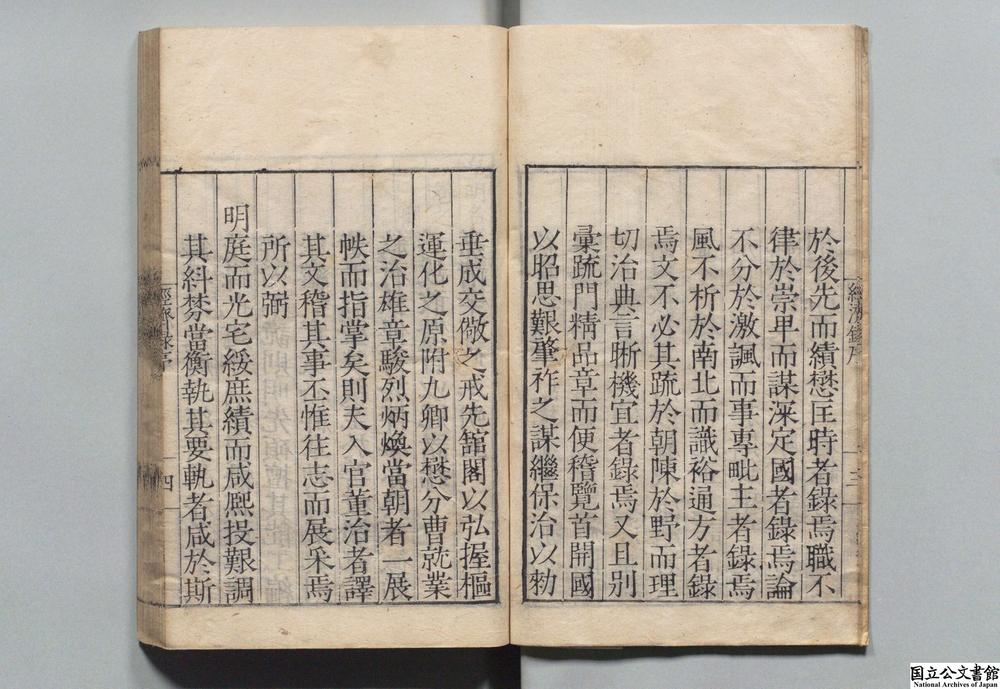 於後先而績懋匡時者錄焉職不
律於崇卑而謀深定國者錄焉論
不分於激諷而事專毗主者錄焉
風不析於南北而識裕通方者錄
焉文不必其疏於朝陳於野而理
切治典言晰機宜者錄焉又且別
彙疏門精品章而便稽覽首開國
以昭思艱肇祚之謀繼保治以勑
垂成交儆之戒先舘閣以弘握樞
運化之原附九卿以懋分曹就業
之治雄章駿烈炳煥當朝者一展
帙而指掌矣則夫入官董治者譯
其文稽其事丕惟往志而展采焉
所以弼
明庭而光宅綏庶績而咸熈投艱調
其斜棼當衡執其要執者咸於斯
經濟錄序
三
四
国立公文書館
National Archives of Japan